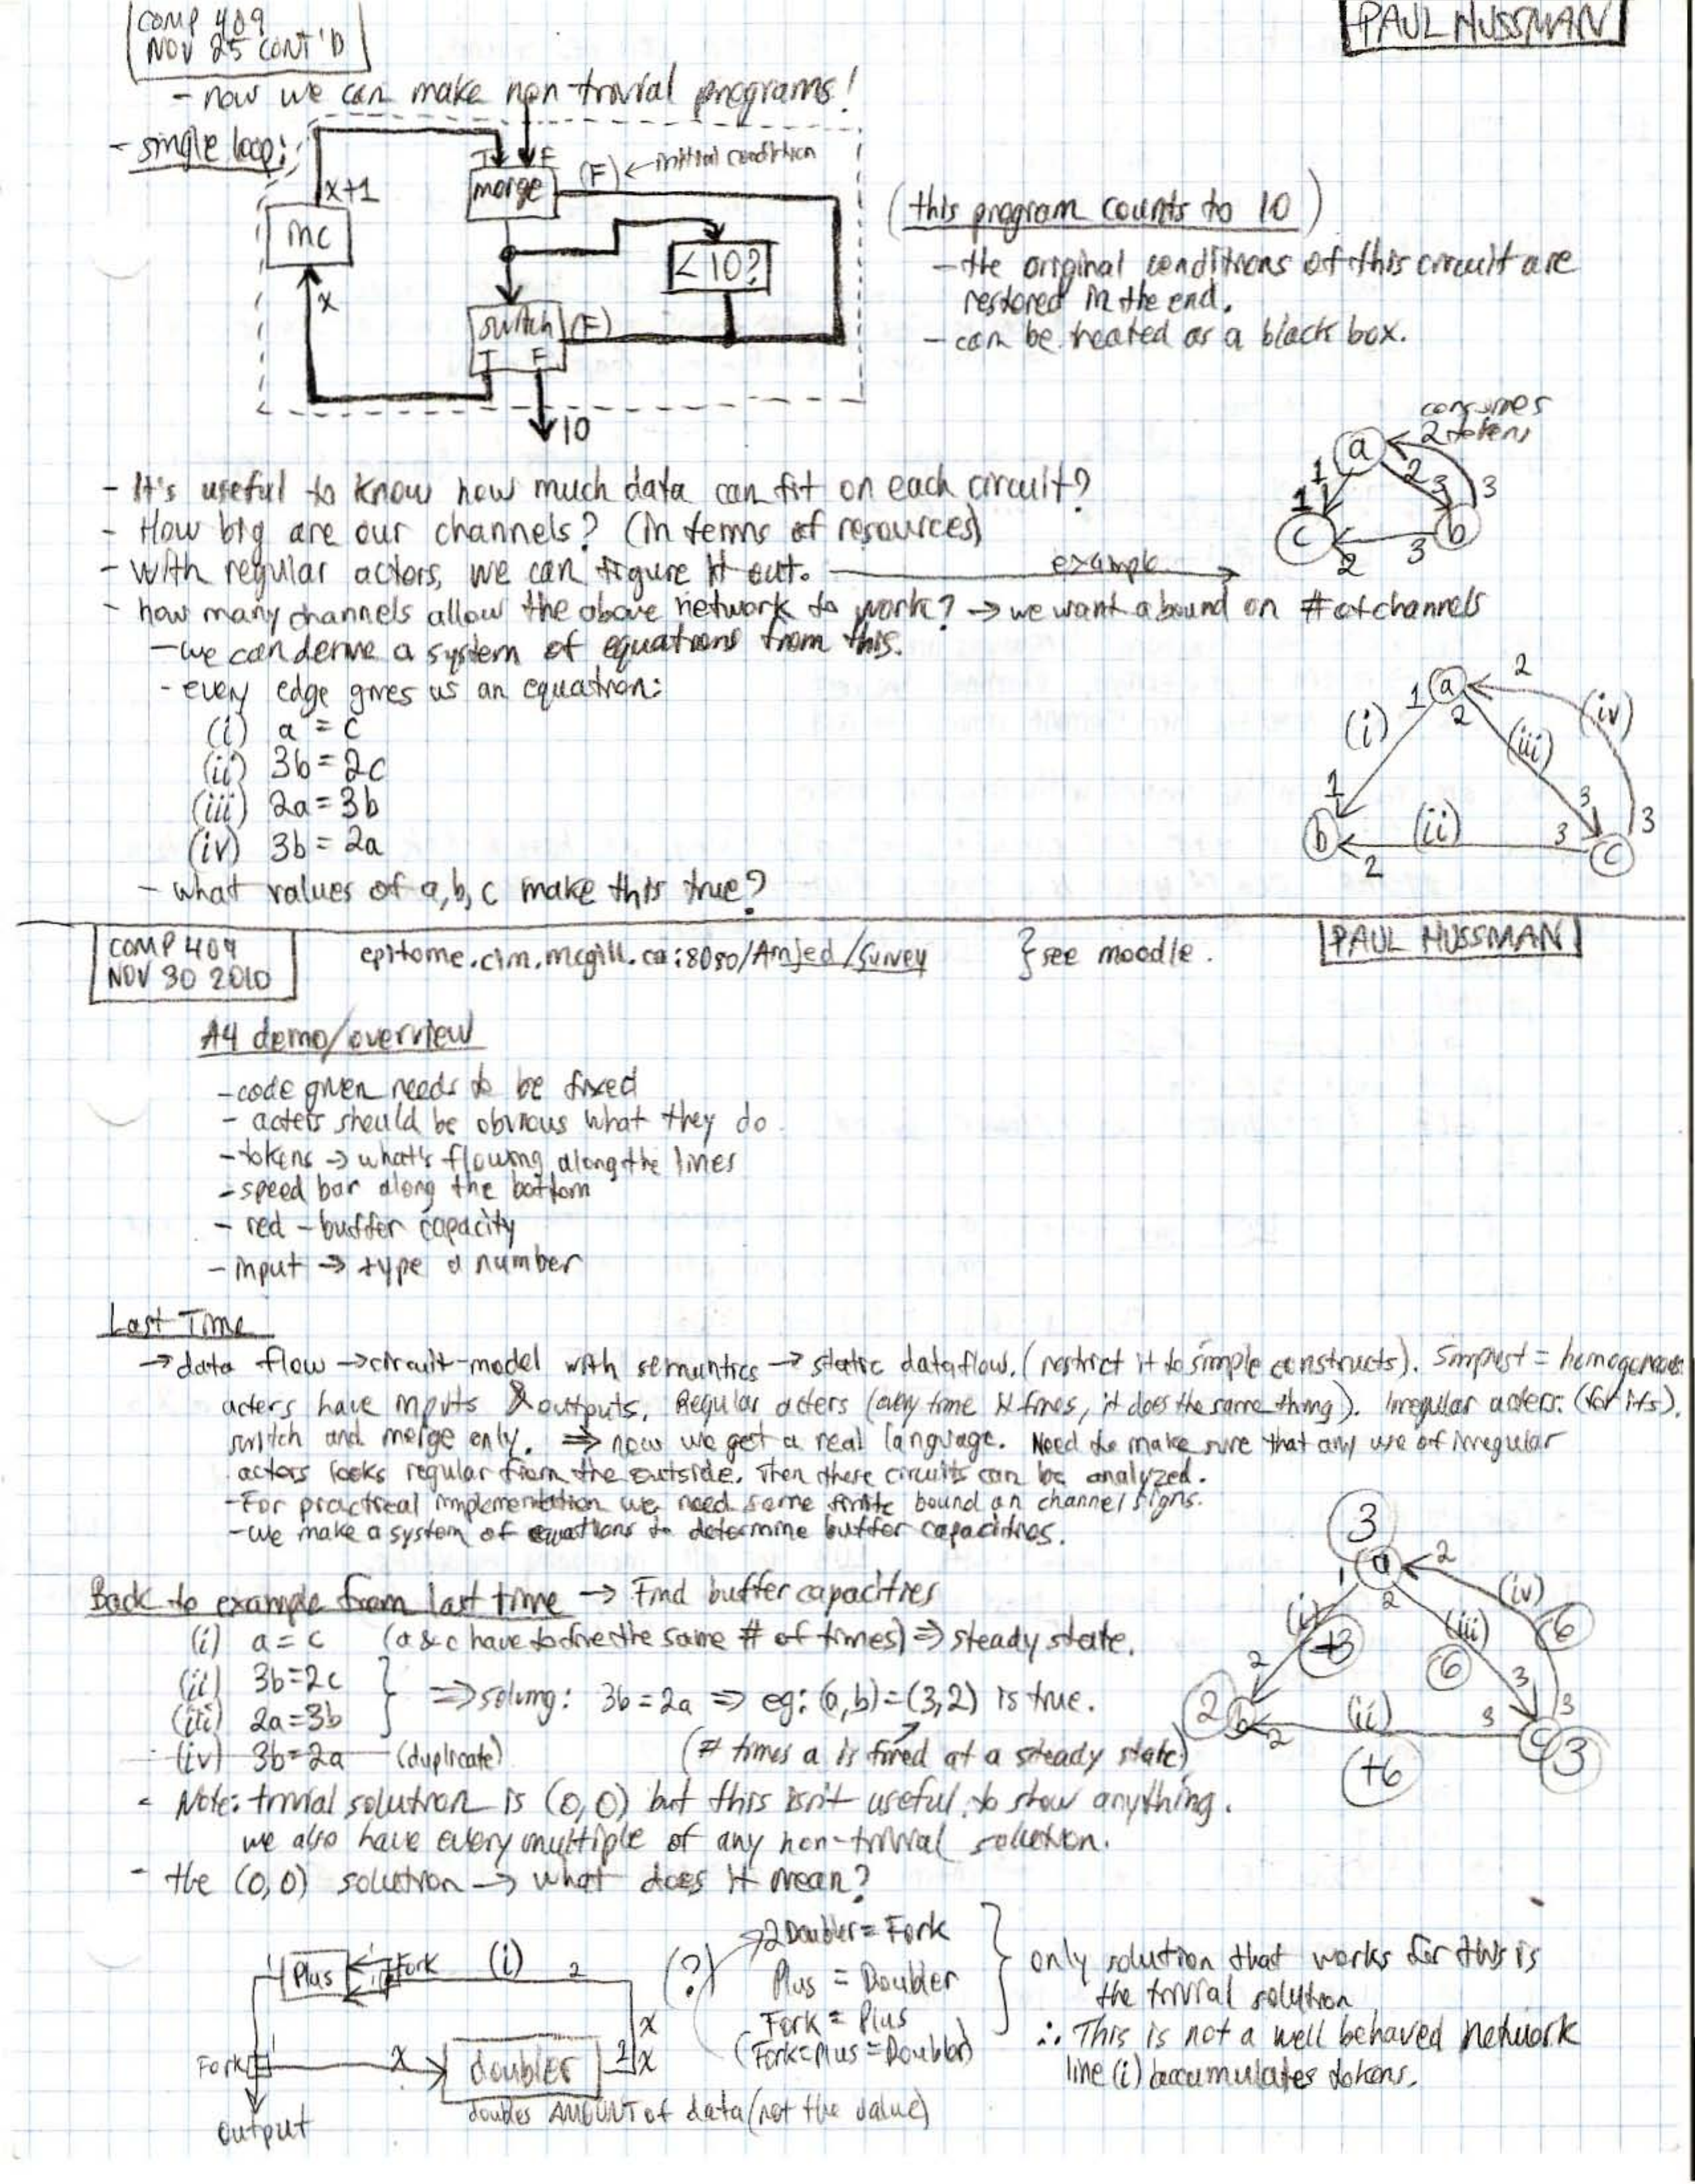 COMP 409
NOV 25 CONT'D
PAUL HUSSMAN
- now we can make non trivial programs!
- single loop:
T F
(F) ← initial condition
merge
x+1
inc
<10?
x
switch (F)
T F
10
(this program counts to 10)
- the original conditions of this circuit are
restored in the end.
- can be treated as a black box.
consumes
2 tokens
a
1 2 3 3
1
c b
2 3
- It's useful to know how much data can fit on each circuit?
- How big are our channels? (in terms of resources)
- with regular actors, we can figure it out. example →
- how many channels allow the above network to work? → we want a bound on # of channels
- we can derive a system of equations from this.
- every edge gives us an equation:
(i) a = c
(ii) 3b = 2c
(iii) 2a = 3b
(iv) 3b = 2a
- what values of a, b, c make this true?
1 a 2
2
(i) (iii) (iv)
1 3 3
b (ii) 3 c
2
COMP 409
NOV 30 2010
epitome.cim.mcgill.ca:8080/Amjed/Survey } see moodle.
PAUL HUSSMAN
A4 demo/overview
- code given needs to be fixed
- acters should be obvious what they do
- tokens → what's flowing along the lines
- speed bar along the bottom
- red - buffer capacity
- input → type a number
Last Time
→ data flow → circuit-model with semantics → static dataflow. (restrict it to simple constructs). Simplest = homogeneous
acters have inputs & outputs. Regular acters (every time it fires, it does the same thing). Irregular acters: (for ifs).
switch and merge only. ⇒ now we get a real language. Need to make sure that any use of irregular
actors looks regular from the outside. Then there circuits can be analyzed.
- For practical implementation we need some finite bound on channel signs.
- we make a system of equations to determine buffer capacities.
Back to example from last time → Find buffer capacities
(i) a = c (a & c have to fire the same # of times) ⇒ steady state.
(ii) 3b=2c
(iii) 2a=3b
} ⇒ solving: 3b=2a ⇒ eg: (a,b)=(3,2) is true.
(iv) 3b=2a (duplicate)
(# times a is fired at a steady state)
3
a 2
1 2
(i) (iii) (iv)
+3 6 6
2 3 3
2 b (ii) 3 c 3
2
+6
- Note: trivial solution is (0,0) but this isn't useful to show anything.
we also have every multiple of any non-trivial solution.
- the (0,0) solution → what does it mean?
1 Plus 1 1 Fork (i) 2
x
Fork 1 x doubler 2 x
doubles AMOUNT of data (not the value)
output
(?) 2Doubler = Fork
Plus = Doubler
Fork = Plus
(Fork=Plus=Doubler)
} only solution that works for this is
the trivial solution
∴ This is not a well behaved network
line (i) accumulates tokens.